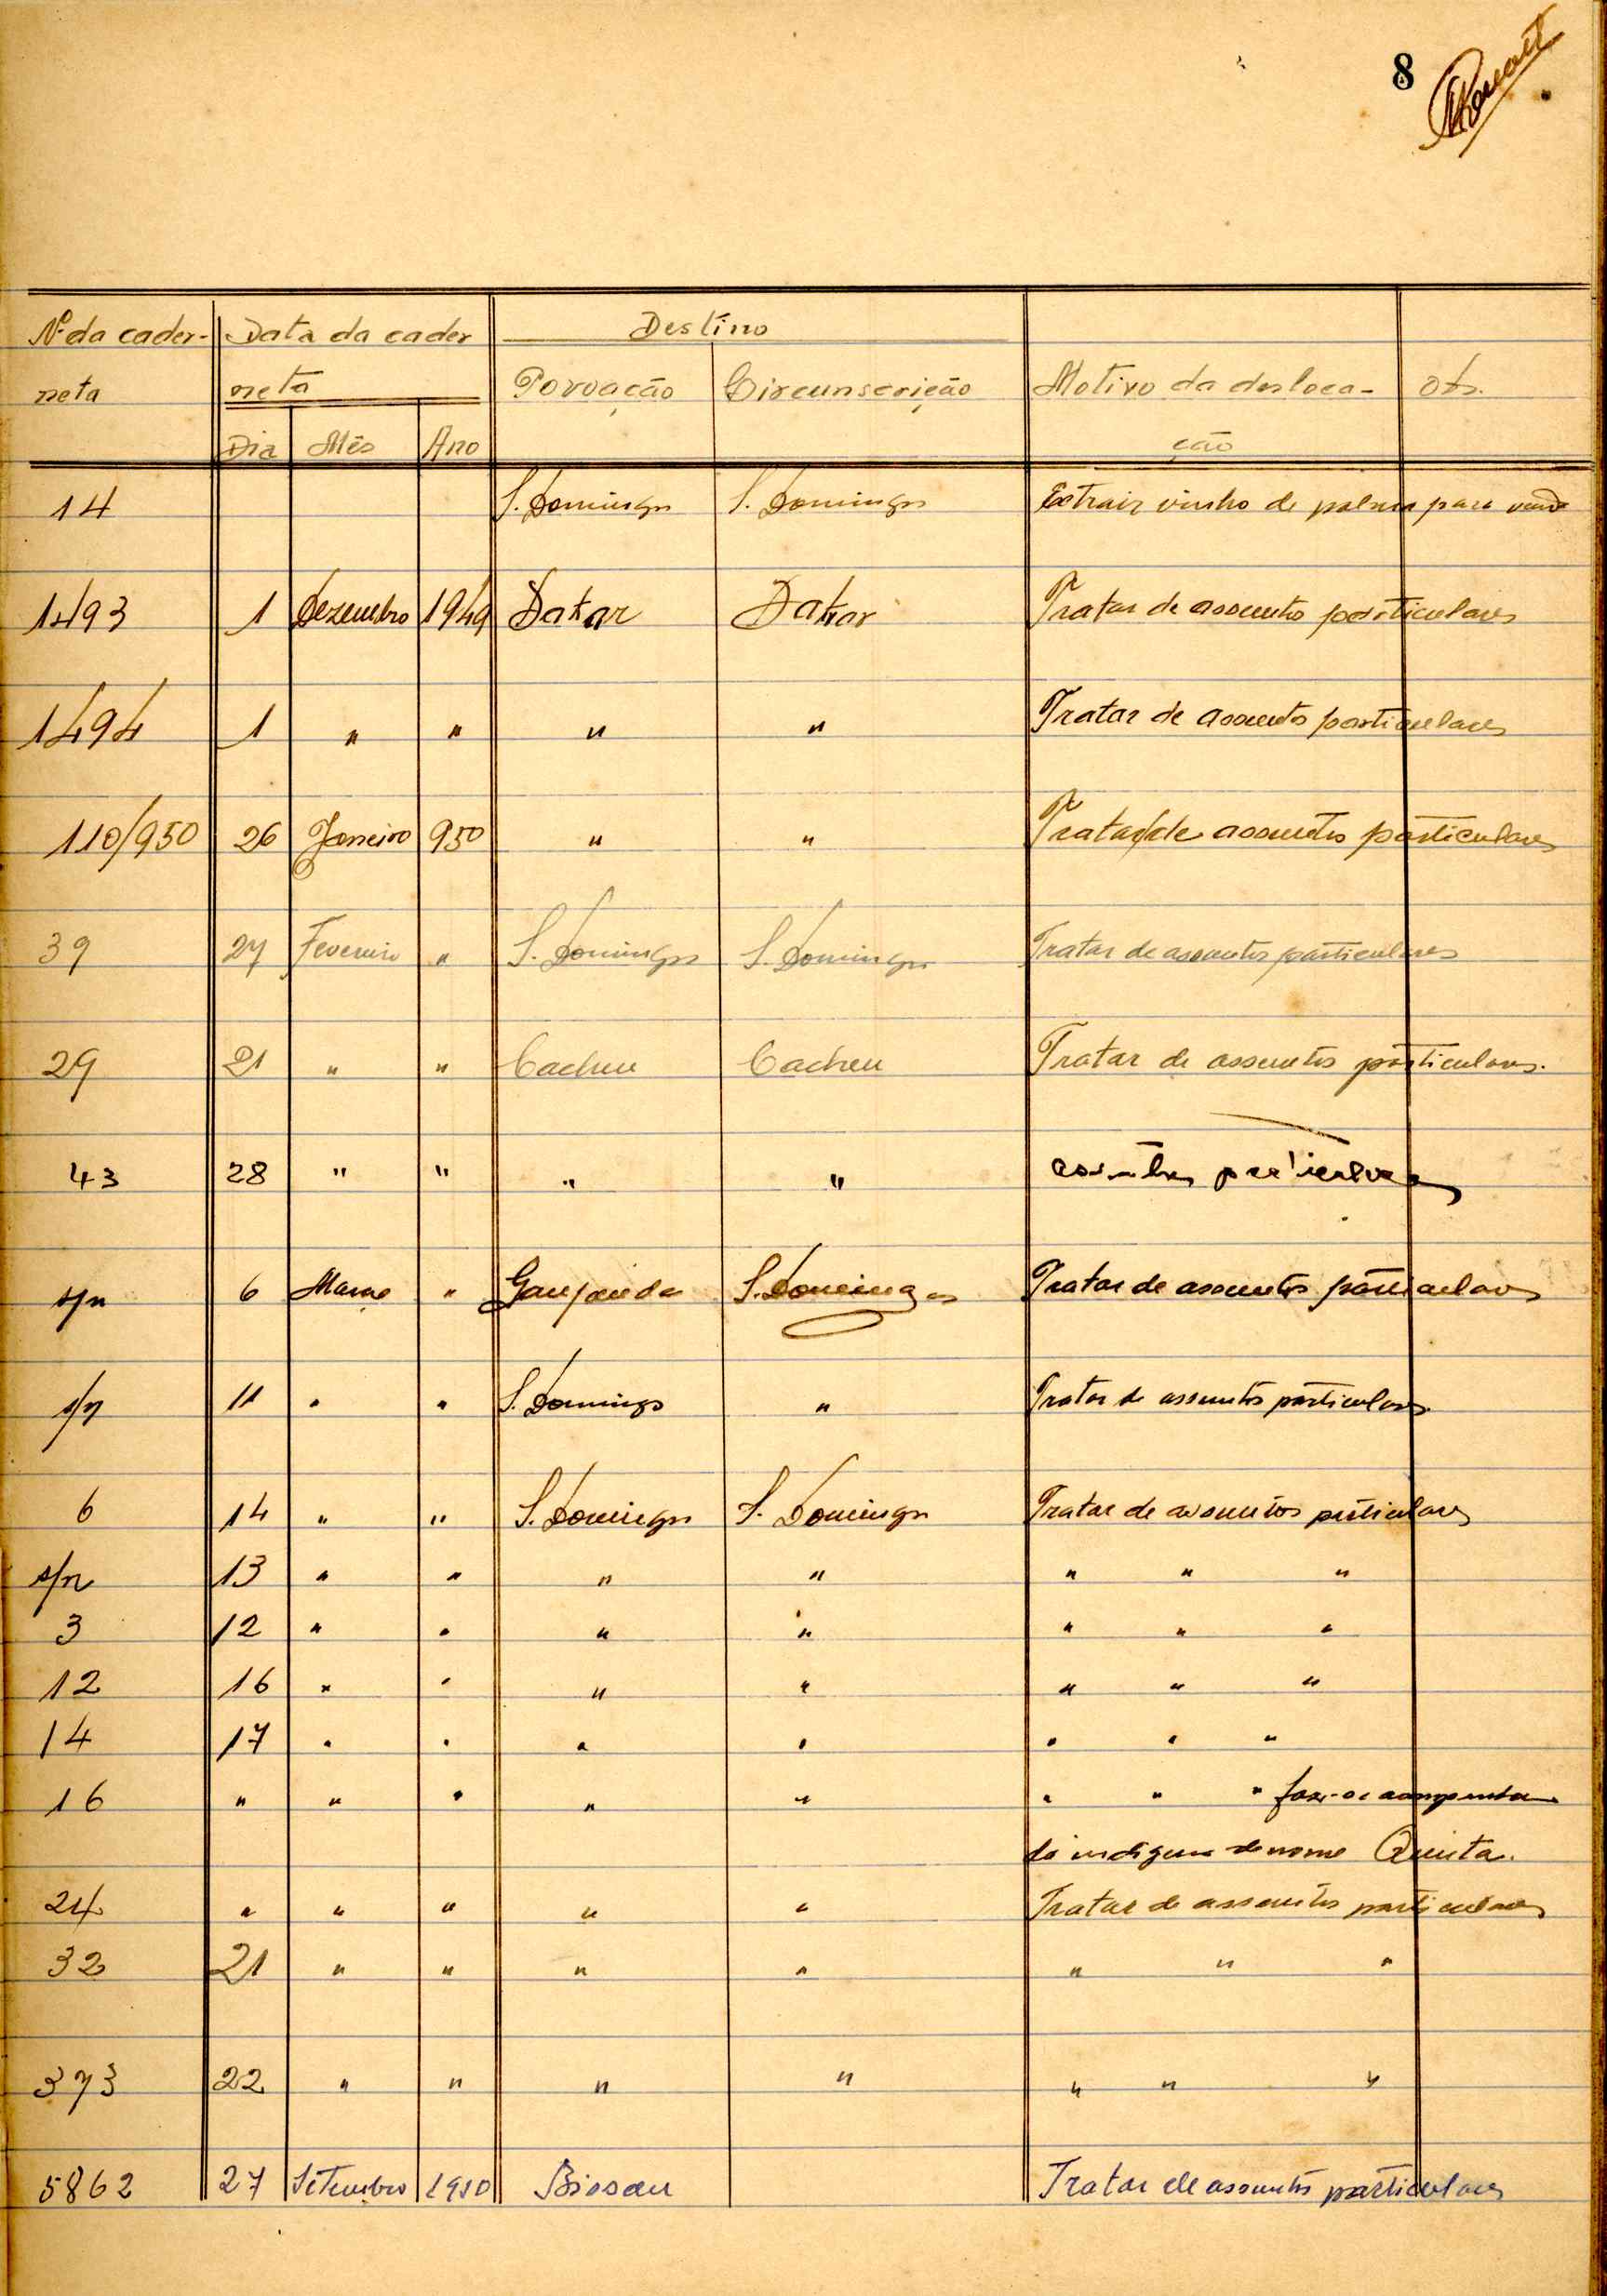 8
Nº da cader- Data da cader Destino
neta neta Povoação Circunscrição Motivo da desloca- Obs.
Dia Mês Ano ção
14 S. Domingos S. Domingos Extrair vinho de palma para
1493 1 Dezembro 1949 Dakar Dakar Tratar de assuntos particulares
1494 1 " " " " Tratar de assuntos particulares
110/950 26 Janeiro 950 " " Tratar de assuntos particulares
39 27 Fevereiro " S. Domingos S. Domingos Tratar de assuntos particulares
29 21 " " Cacheu Cacheu Tratar de assuntos particulares.
43 28 " " " " assuntos particulares
s/n 6 Março " S. Domingos Tratar de assuntos particulares
s/n 11 " " S. Domingos " Tratar de assuntos particulares
6 14 " " S. Domingos S. Domingos Tratar de assuntos particulares
s/n 13 " " " " " " "
3 12 " " " " " " "
12 16 " " " " " " "
14 17 " " " " " " "
16 " " " " " " " "
indigena de nome Quinta.
24 " " " " " Tratar de assuntos particulares
32 21 " " " " " " "
373 22 " " " " " " "
5862 27 Setembro 1950 Bissau Tratar de assuntos particulares